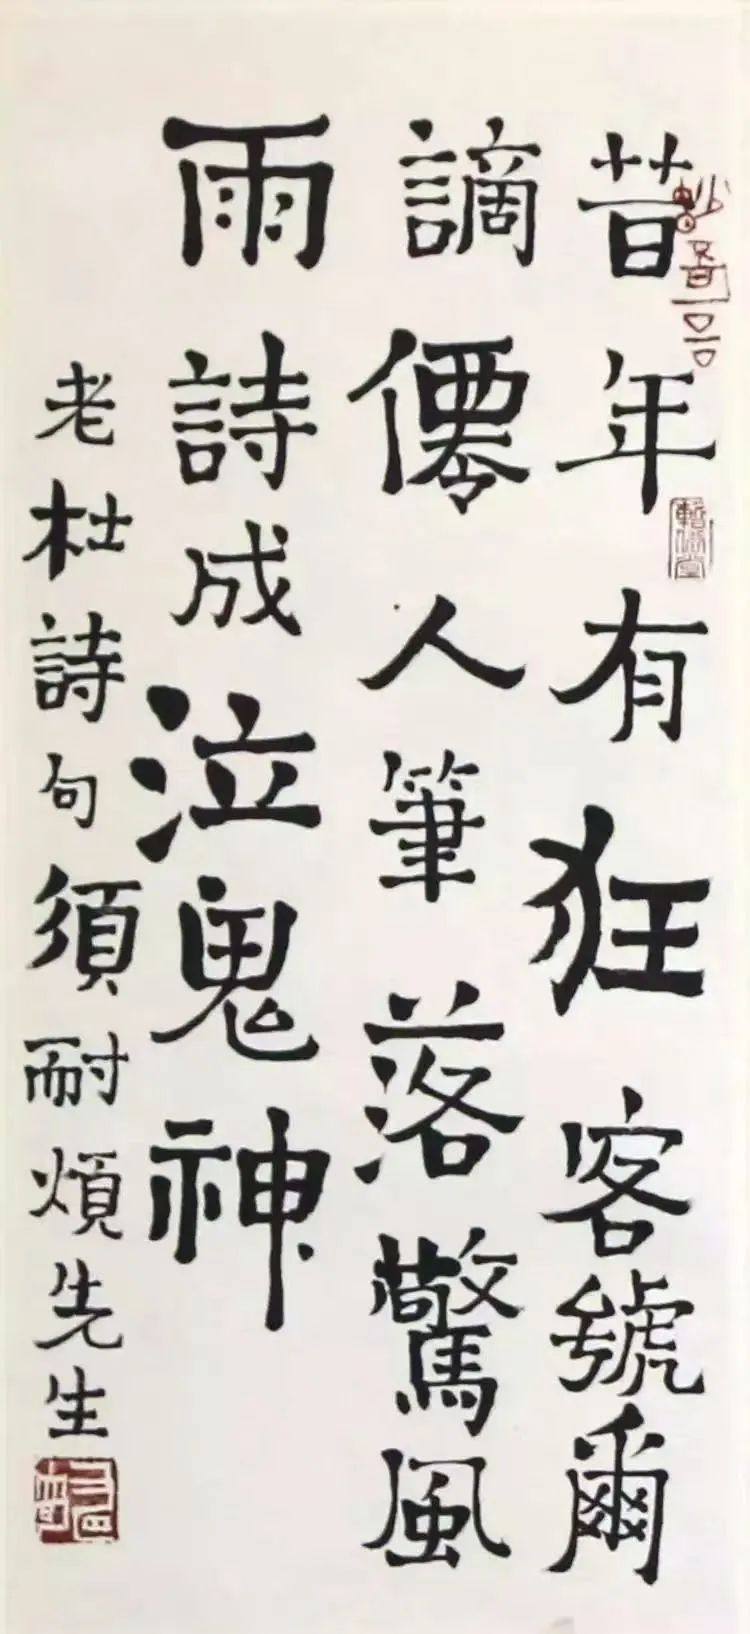 昔年有狂客號爾
謫僊人筆落驚風
雨詩成泣鬼神
老杜詩句須耐煩先生